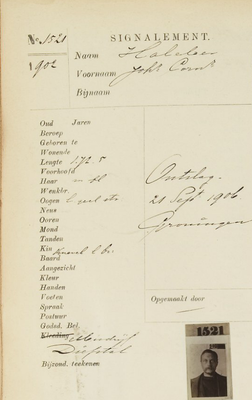 No. 1521
SIGNALEMENT.
1902
Naam
Voornaam Joh.s Corn.s
Bijnaam
Oud Jaren
Beroep
Geboren te
Wonende
Lengte 1.72.5
Voorhoofd
Haar
Wenkbr.
Oogen
Neus
Ooren
Mond
Tanden
Kin
Baard
Aangezicht
Kleur
Handen
Voeten
Spraak
Postuur
Godsd. Bel.
Kleeding
Diefstal
Bijzond. teekenen
Ontslag.
21 Sept 1906
Groningen
Opgemaakt door
1521